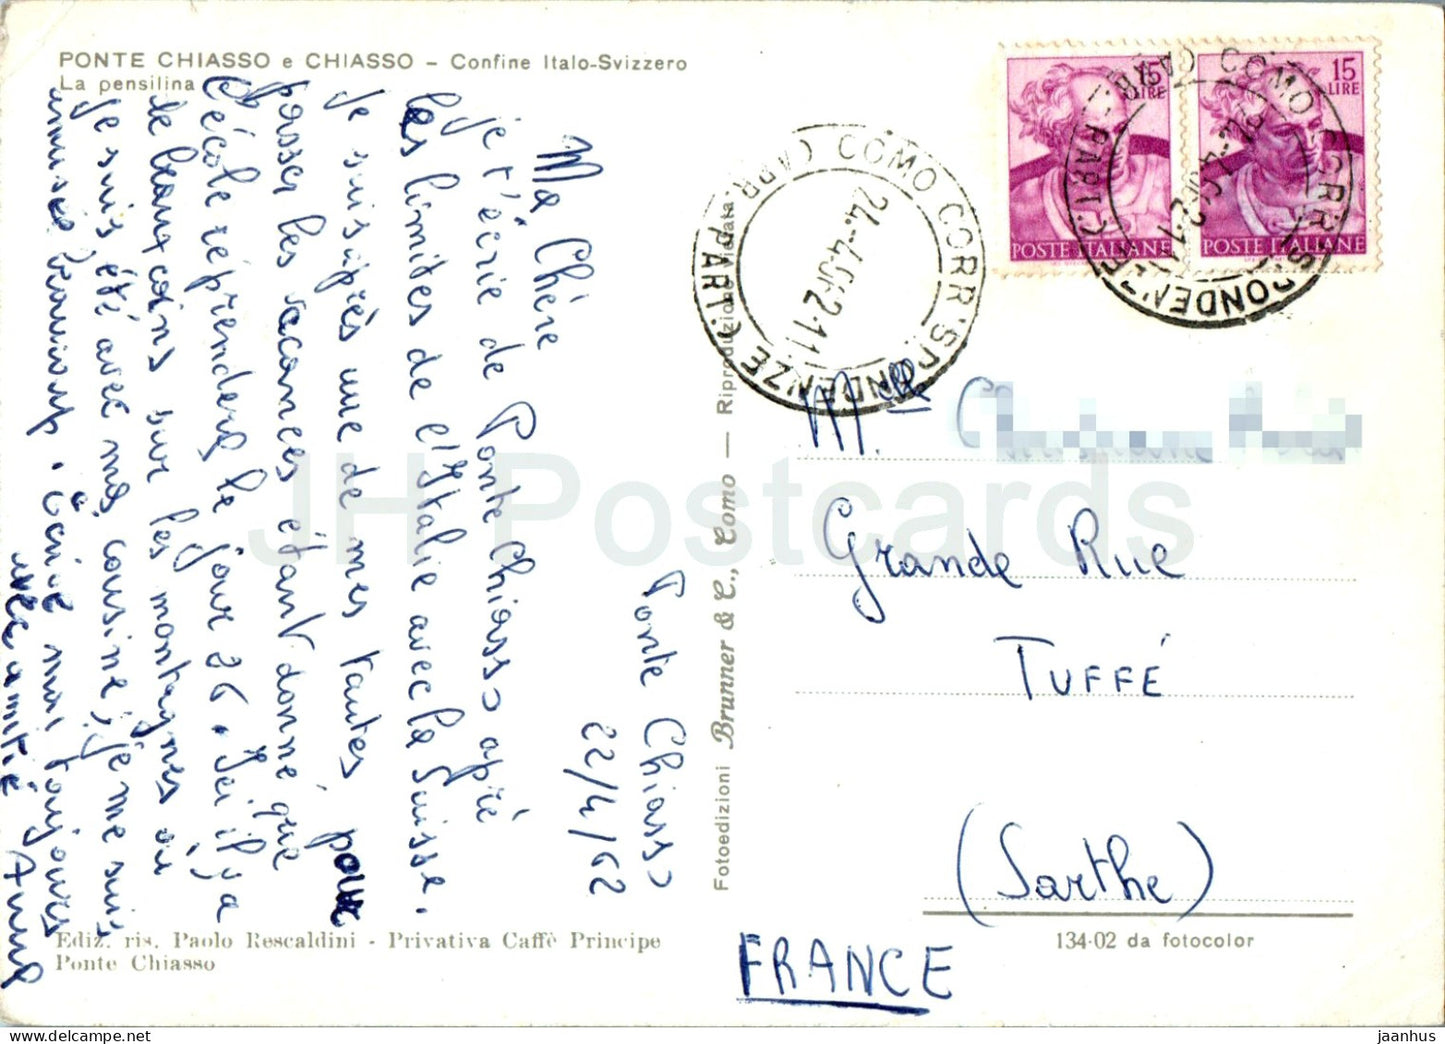 PONTE CHIASSO e CHIASSO – Confine Italo-Svizzero
La pensilina
Ponte Chiasso
22/4/62
Ma Chère
je t'écrie de Ponte Chiasso aprè
les limites de l'Italie avec la Suisse.
Je suis aprés une de mes tantes pour
passer les vacances étant donné que
l'école réprendera le jour 26. Ici il y a
de beaux coins sur les montagnes où
je suis été avec ma cousine; je me suis
amusée beaucoup. Ecrive moi toujours
avec amitié Anna
Ediz. ris. Paolo Rescaldini - Privativa Caffè Principe
Ponte Chiasso
Fotoedizioni Brunner & C., Como — Riproduzione vietata
COMO CORRISPONDENZE
(ARR. PART.)
24-4-62·11
15
LIRE
POSTE ITALIANE
15
LIRE
POSTE ITALIANE
COMO CORRISPONDENZE
(ARR. PART.)
Mlle
Grande Rue
TUFFÉ
(Sarthe)
FRANCE
134-02 da fotocolor
JH Postcards
https://www.delcampe.net
jaanhus